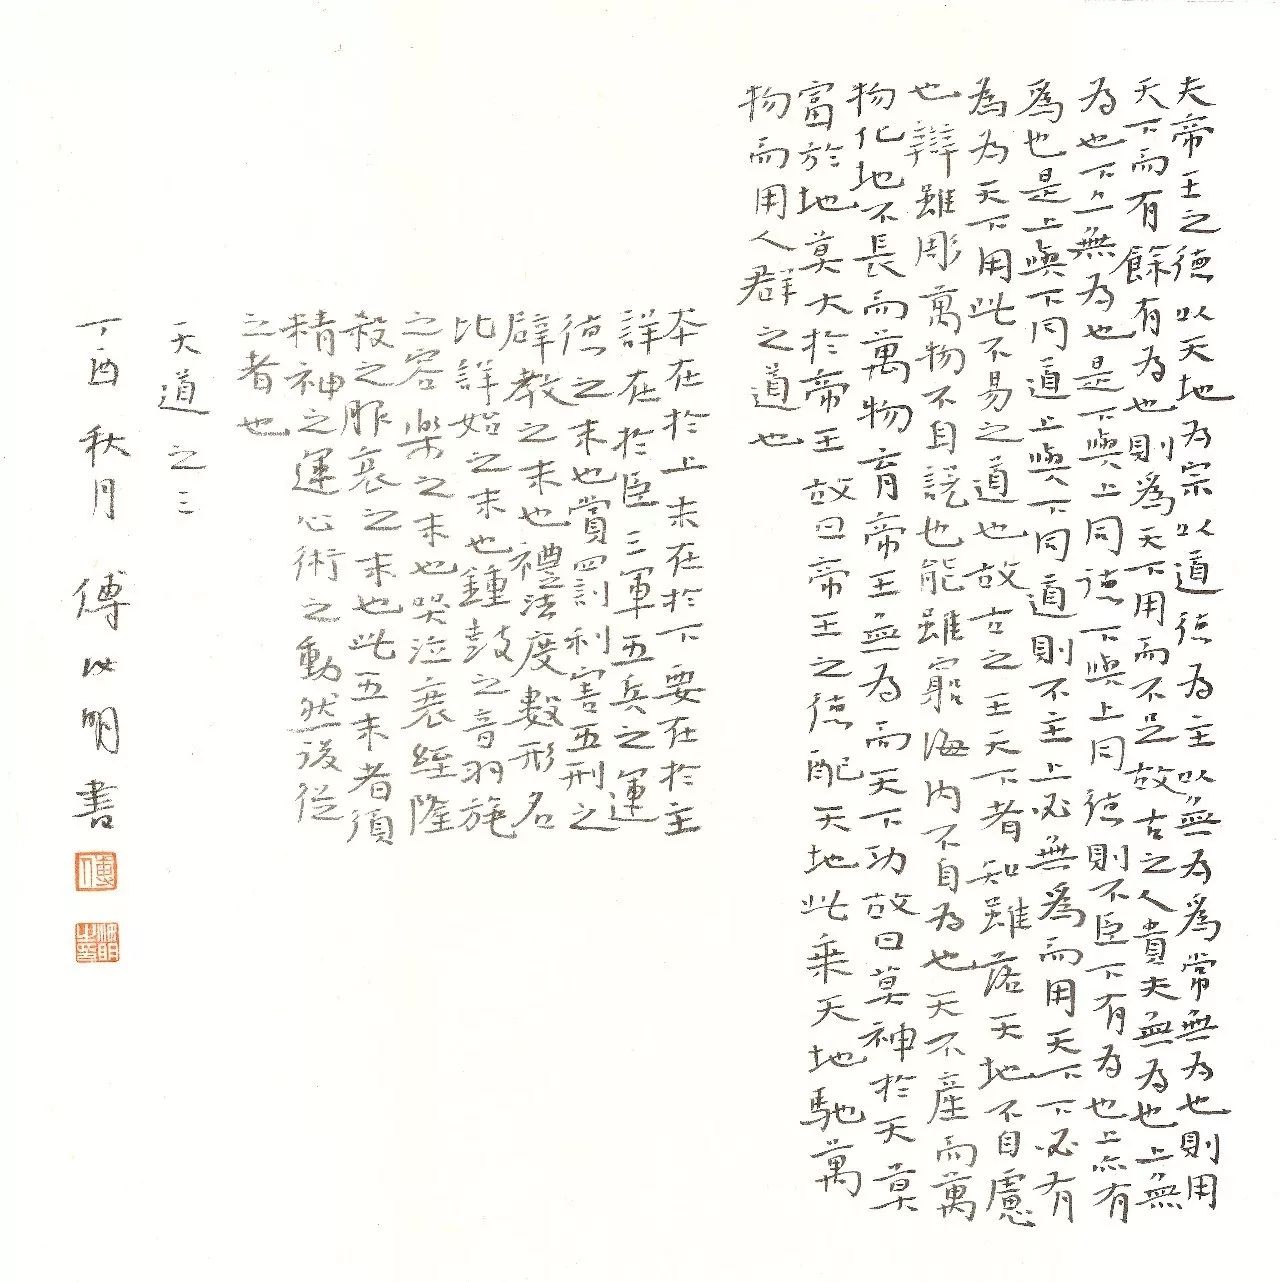 夫帝王之德以天地為宗以道德為主以無為爲常無為也則用
天下而有餘有為也則爲天下用而不足故古之人貴夫無為也上無
為也下亦無為也是下與上同德下與上同德則不臣下有為也上亦有
爲也是上與下同道上與下同道則不主上必無爲而用天下下必有
為為天下用此不易之道也故古之王天下者知雖落天地不自慮
也辯雖彫萬物不自說也能雖窮海內不自為也天不產而萬
物化地不長而萬物育帝王無為而天下功故曰莫神於天莫
富於地莫大於帝王故曰帝王之德配天地此乘天地馳萬
物而用人群之道也
本在於上末在於下要在於主
詳在於臣三軍五兵之運
德之末也賞罰利害五刑之
辟教之末也禮法度數形名
比詳治之末也鍾鼓之音羽旄
之容樂之末也哭泣衰絰隆
殺之服哀之末也此五末者須
精神之運心術之動然後從
之者也
天道之三
丁酉秋月傅以明書